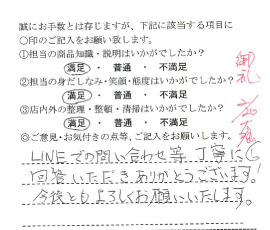 誠にお手数とは存じますが、下記に該当する項目に
〇印のご記入をお願い致します。
①担当の商品知識・説明はいかがでしたか？
満足 ・ 普通 ・ 不満足
②担当の身だしなみ・笑顔・態度はいかがでしたか？
満足 ・ 普通 ・ 不満足
③店内外の整理・整頓・清掃はいかがでしたか？
満足 ・ 普通 ・ 不満足
◎ご意見・お気付きの点等、ご記入をお願いします。
LINEでの問い合わせ等、丁寧に
回答いただきありがとうございます!
今後ともよろしくお願いいたします。
御礼